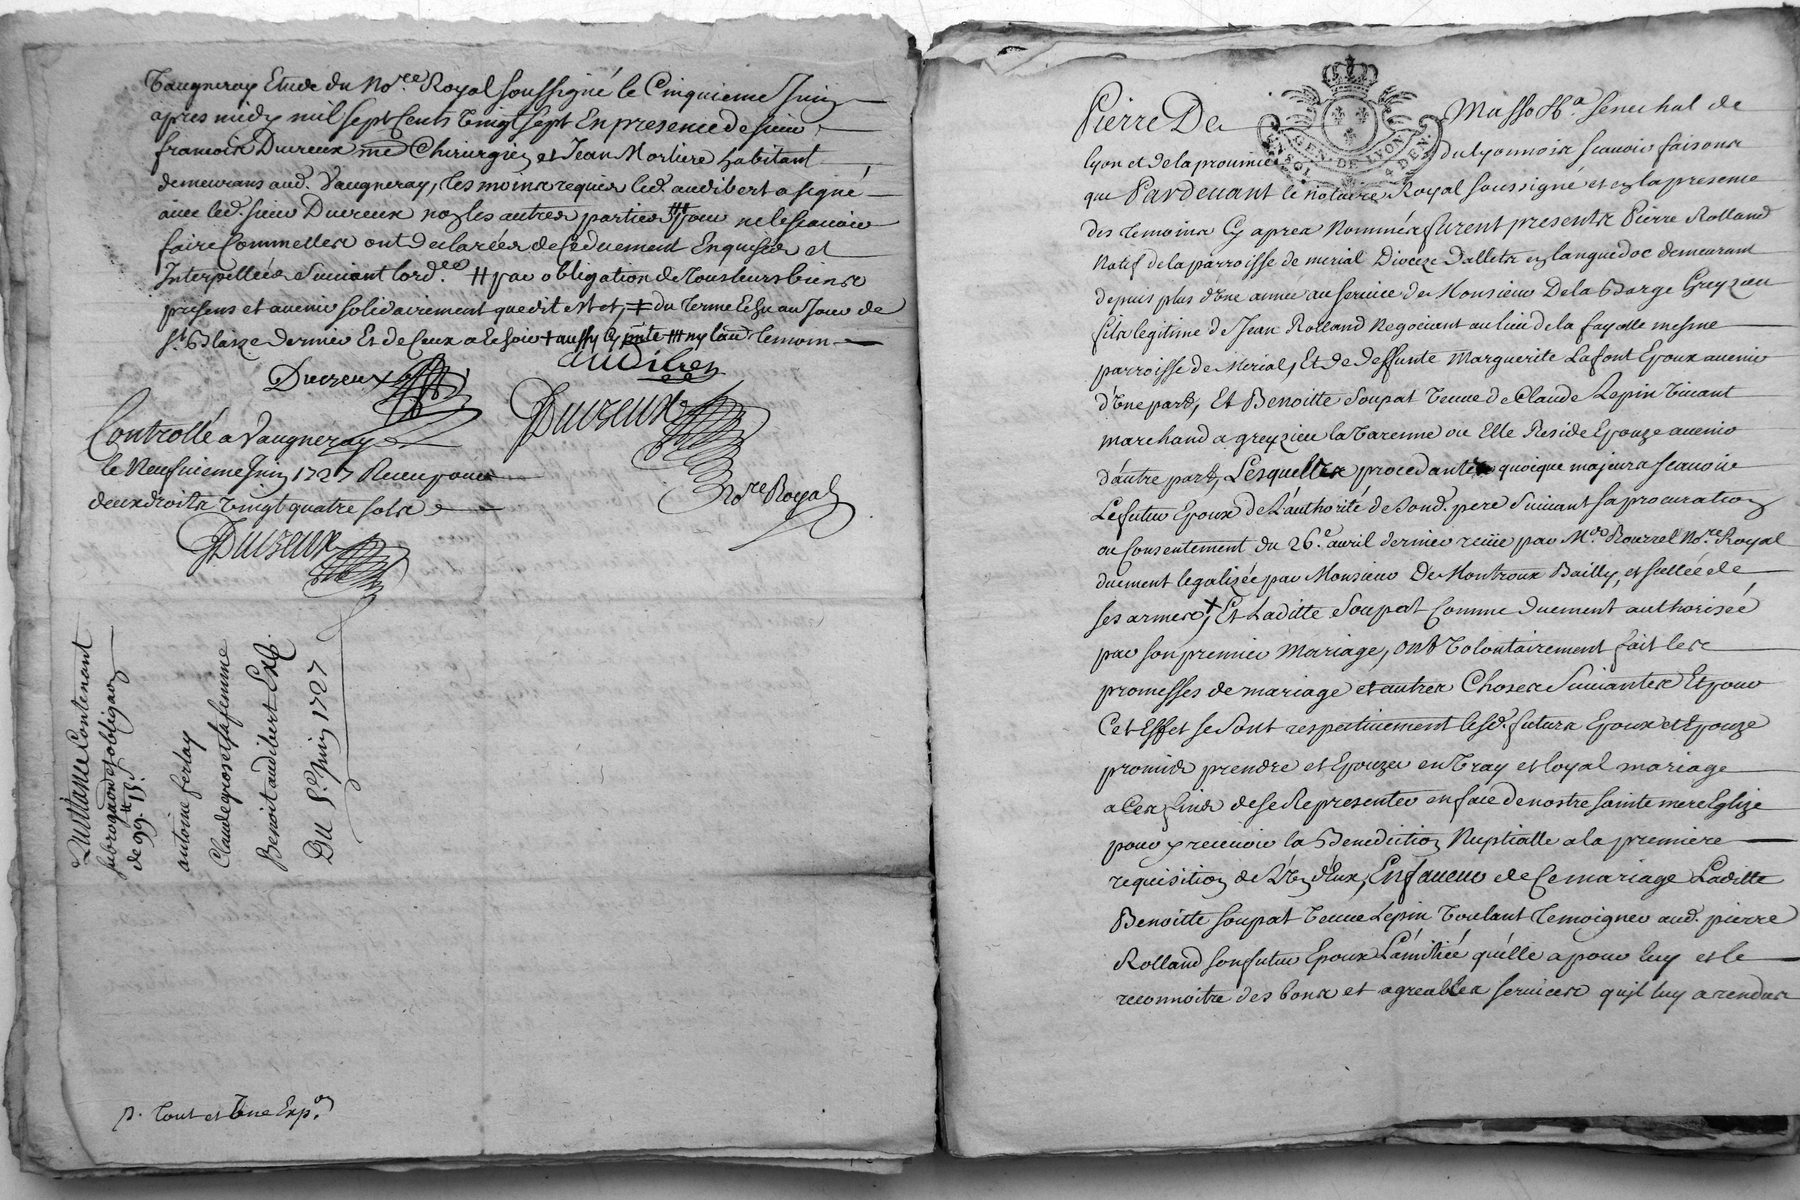 Vaugneray Etude du No.re Royal soussigné le Cinquieme Juin
apres midy mil sept Cents vingt sept En presence de sieur
francois Ducreux me Chirurgien et Jean Morliere habitant
demeurans aud. Vaugneray, tesmoins requis led. audibert a signé
avec led. sieur Ducreux non les autres parties pour ne le scavoir
faire Comme elles ont declarées de Ce duement Enquises et
Interpellées Suivant lord.ce # par obligation de tous leurs biens
presens et avenir solidairement que dit est et, ‡ du terme Echu au Jour de
St. Blaize dernier Et de Ceux a Echoir + aussy Cy pnte ⧻ ny laud. temoin
audiber
Ducreux
Ducreux
No.re Royal
Controllé a Vaugneray
le Neufvieme Juin 1727 Receu pour
deux droits vingt quatre sols
Ducreux
Quittance Contenant
subrogaon et obligaon
de 99.# 15.s
antoine ferlay
Claude gros et sa femme
Benoit audibert Exp.
Du 5.e Juin 1727
p. tout et Une Exp.on
Pierre De Masso Ch.er Senechal de
GEN. DE LYON
lyon et de la province du lyonnois scavoir faisons
que Pardevant le notaire Royal soussigné et en la presence
des temoins Cy apres Nommés furent presents Pierre Rolland
Natif de la parroisse de merial Dioceze dalletz en languedoc demeurant
depuis plus d'Une année au service de Monsieur De la Barge Greyzieu
fils legitime de Jean Rolland Negociant au lieu de la fayolle mesme
parroisse de Merial, Et de deffunte Marguerite Lafont Epoux avenir
d'Une part, Et Benoitte Soupat veuve de Claude Lepin vivant
marchand a greyzieu la varenne ou Elle Reside Epouze avenir
d'autre part, Lesquelles procedantes quoique majeurs scavoir
Le futur Epoux de L'authorité de Sond. pere Suivant sa procuration
ou Consentement du 26.e avril dernier reçüe par M.e Rourrel No.re Royal
duement legalizée par Monsieur De Montroux Bailly, et scellée de
ses armes + Et Laditte Soupat Comme duement authorisée
par son premier Mariage, ont Volontairement fait les
promesses de mariage et autres Choses Suivantes Et pour
Cet Effet se Sont respectivement lesd. futurs Epoux et Epouze
promis prendre et Epouzer en vray et loyal mariage
a Ces fins de se Representer en face de nostre sainte mere Eglize
pour y recevoir la Benediction Nuptialle a la premiere
requisition de L'Un d'Eux, En faveur de Ce mariage Laditte
Benoitte Soupat veuve Lepin voulant temoigner aud. pierre
Rolland son futur Epoux L'amitiée qu'elle a pour luy et le
reconnoitre des bons et agreables services qu'il luy a rendus